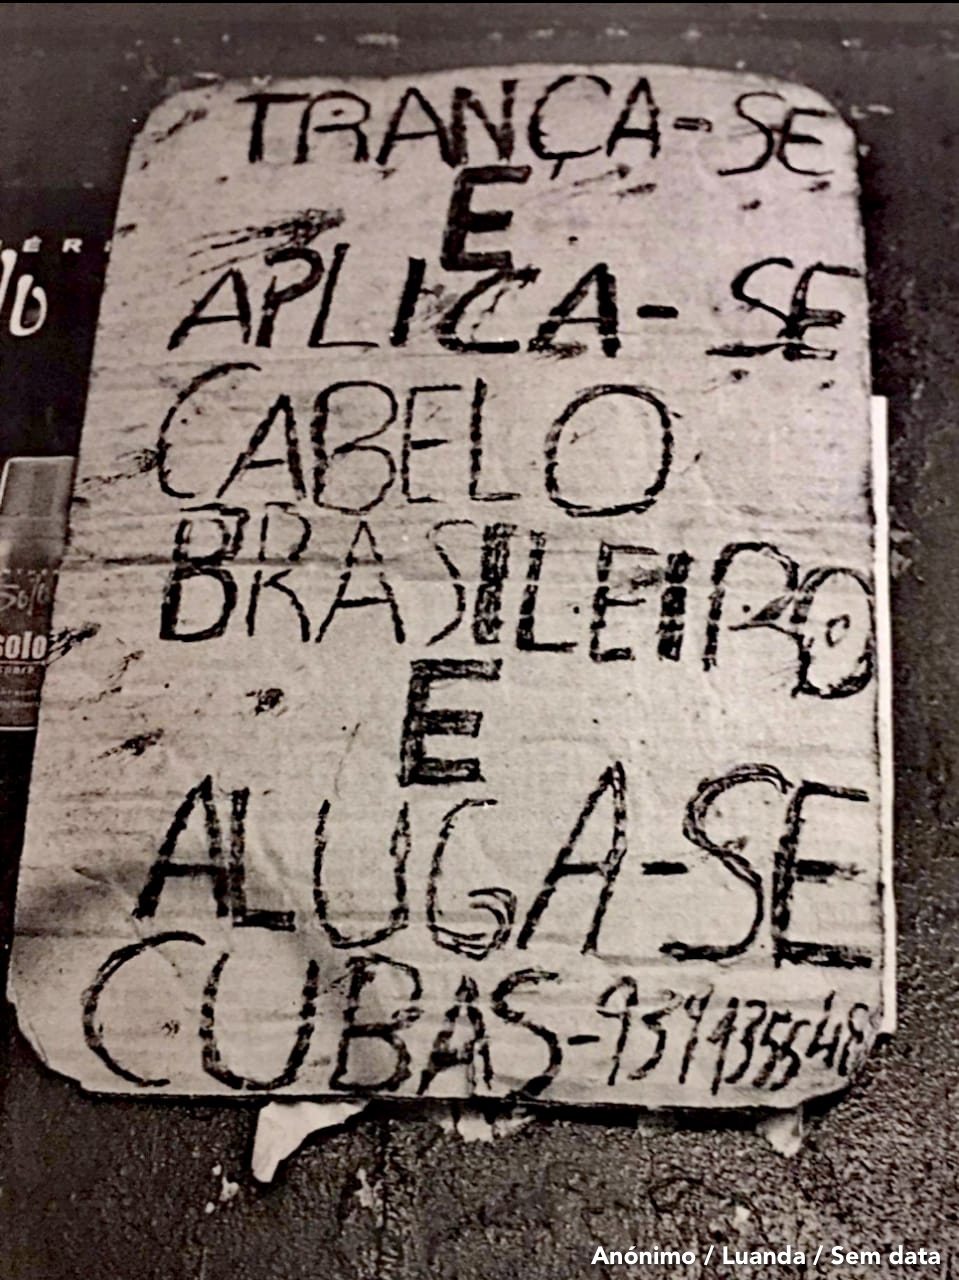 TRANÇA-SE
E
APLICA-SE
CABELO
BRASILEIRO
E
ALUGA-SE
CUBAS-
ÉRI
%
50%
solo
Anónimo / Luanda / Sem data